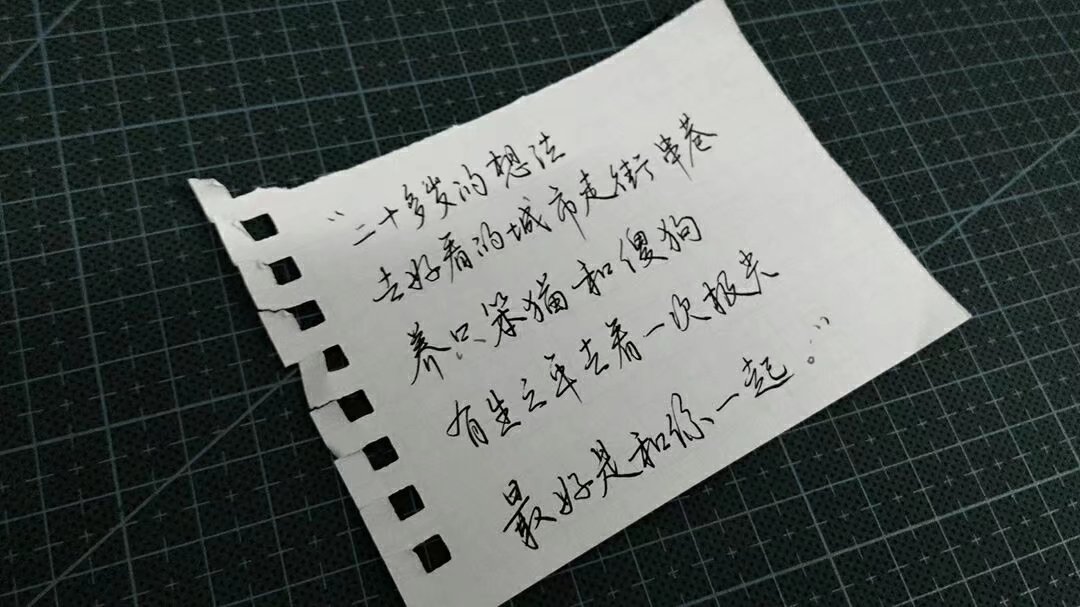 “二十多岁的想法
去好看的城市走街串巷
养只笨猫和傻狗
有生之年去看一次极光
最好是和你一起。”